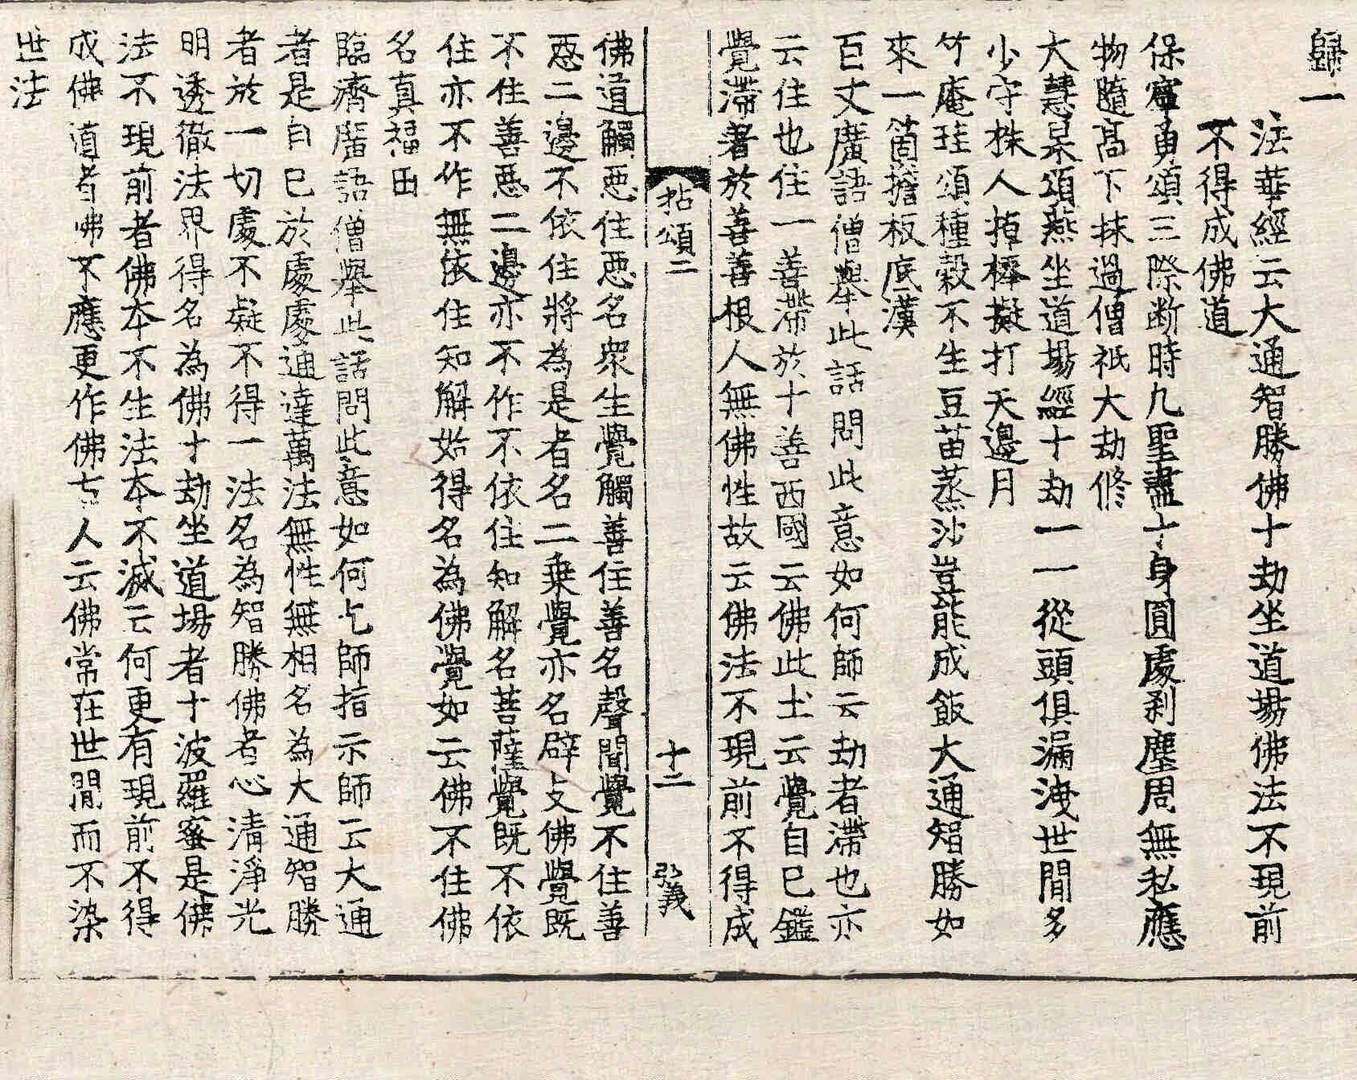 歸一
法華經云大通智勝佛十劫坐道場佛法不現前
不得成佛道
保寧勇頌三際断時九聖盡十身圓處刹塵周無私應
物隨髙下抹過僧祇大劫修
大慧杲頌燕坐道場經十劫一一從頭俱漏洩世間多
少守株人掉棒擬打天邊月
竹庵珪頌種穀不生豆苗蒸沙豈能成飯大通智勝如
來一箇擔板底漢
百丈廣語僧舉此話問此意如何師云劫者滯也亦
云住也住一善滯於十善西國云佛此土云覺自己鑑
覺滯著於善善根人無佛性故云佛法不現前不得成
拈頌二 十二 弘義
佛道觸惡住惡名衆生覺觸善住善名聲聞覺不住善
惡二邊不依住將為是者名二乗覺亦名辟支佛覺既
不住善惡二邊亦不作不依住知解名菩薩覺既不依
住亦不作無依住知解始得名為佛覺如云佛不住佛
名真福田
臨濟廣語僧舉此話問此意如何乞師指示師云大通
者是自己於處處通達萬法無性無相名為大通智勝
者於一切處不疑不得一法名為智勝佛者心清淨光
明透徹法界得名為佛十劫坐道場者十波羅蜜是佛
法不現前者佛夲不生法夲不滅云何更有現前不得
成佛道者佛不應更作佛古人云佛常在世間而不染
世法